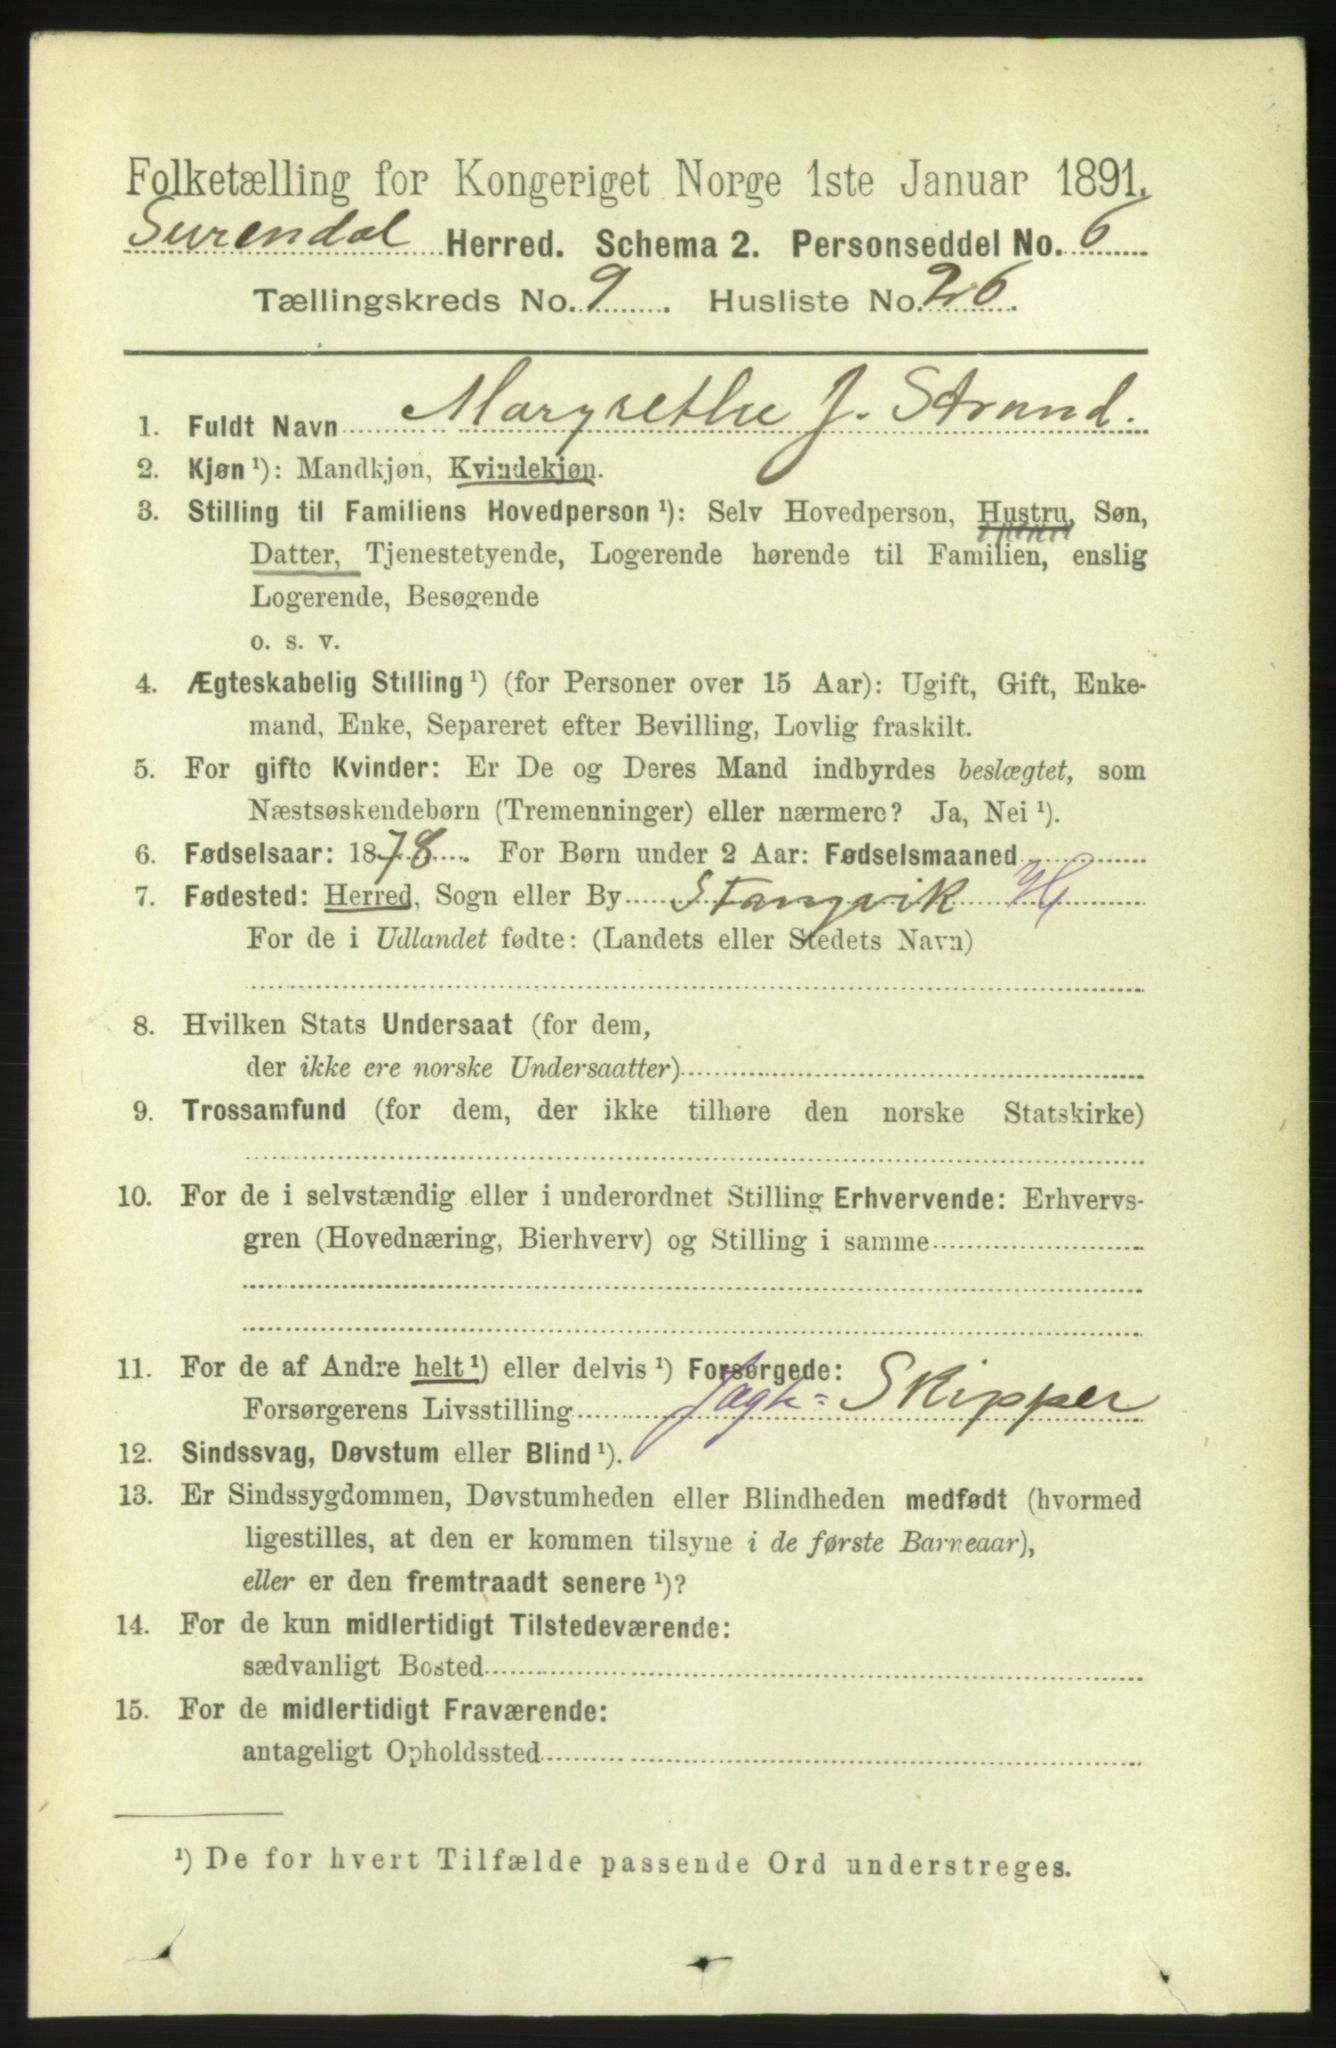 Folketælling for Kongeriget Norge 1ste Januar 1891.
Surendal Herred. Schema 2. Personseddel No. 6
Tællingskreds No. 9. Husliste No. 26.
1. Fuldt Navn Margrethe J. Strand.
2. Kjøn ¹): Mandkjøn, Kvindekjøn.
3. Stilling til Familiens Hovedperson ¹): Selv Hovedperson, Hustru, Søn,
Datter, Tjenestetyende, Logerende hørende til Familien, enslig
Logerende, Besøgende
o. s. v.
4. Ægteskabelig Stilling ¹) (for Personer over 15 Aar): Ugift, Gift, Enke-
mand, Enke, Separeret efter Bevilling, Lovlig fraskilt.
5. For gifte Kvinder: Er De og Deres Mand indbyrdes beslægtet, som
Næstsøskendebørn (Tremenninger) eller nærmere? Ja, Nei ¹).
6. Fødselsaar: 1878. For Børn under 2 Aar: Fødselsmaaned
7. Fødested: Herred, Sogn eller By Stangvik H
For de i Udlandet fødte: (Landets eller Stedets Navn)
8. Hvilken Stats Undersaat (for dem,
der ikke ere norske Undersaatter)
9. Trossamfund (for dem, der ikke tilhøre den norske Statskirke)
10. For de i selvstændig eller i underordnet Stilling Erhvervende: Erhvervs-
gren (Hovednæring, Bierhverv) og Stilling i samme
11. For de af Andre helt ¹) eller delvis ¹) Forsørgede:
Forsørgerens Livsstilling Jagt= Skipper
12. Sindssvag, Døvstum eller Blind ¹).
13. Er Sindssygdommen, Døvstumheden eller Blindheden medfødt (hvormed
ligestilles, at den er kommen tilsyne i de første Barneaar),
eller er den fremtraadt senere ¹)?
14. For de kun midlertidigt Tilstedeværende:
sædvanligt Bosted
15. For de midlertidigt Fraværende:
antageligt Opholdssted
¹) De for hvert Tilfælde passende Ord understreges.